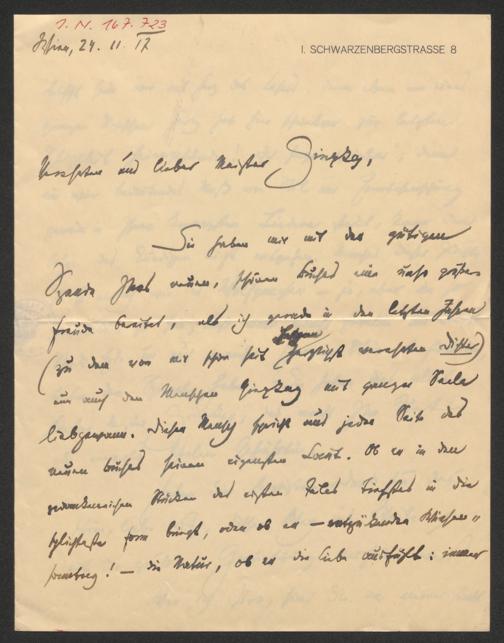 I. N. 167.723
Wien, 24. 11. 17
I. SCHWARZENBERGSTRASSE 8
Verehrter und lieber Meister Ginzkey,
Sie haben mir mit der gütigen
Spende Ihres neuen, schönen Buches eine umso größere
Freude bereitet, als ich gerade in den letzten Jahren
(zu dem von mir schon seit herzlichst verehrten Dichter)
nun auch den Menschen Ginzkey mit ganzer Seele
liebgewann. Dieser Mensch spricht aus jeder Seite des
neuen Buches seinen eigensten Laut. Ob er in den
gedankenreichen Stücken des ersten Teiles Tiefstes in die
schlichteste Form bringt, oder ob er – entzückender
! – die Natur, ob er die Liebe ausfühlt: immer